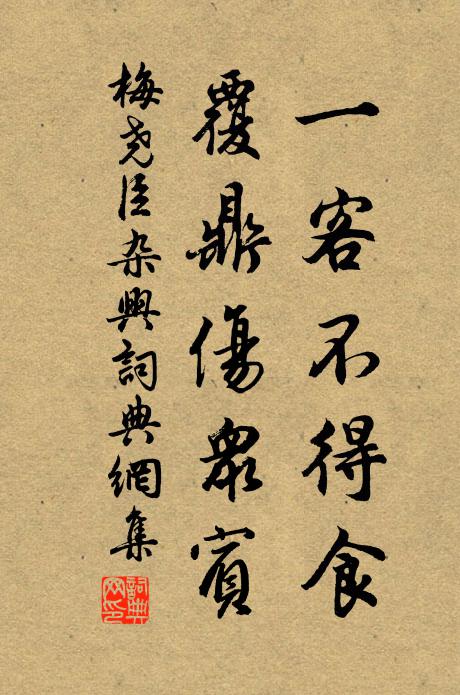 一客不得食
覆鼎傷眾賓
梅堯臣杂興詞典網集
詞典網印